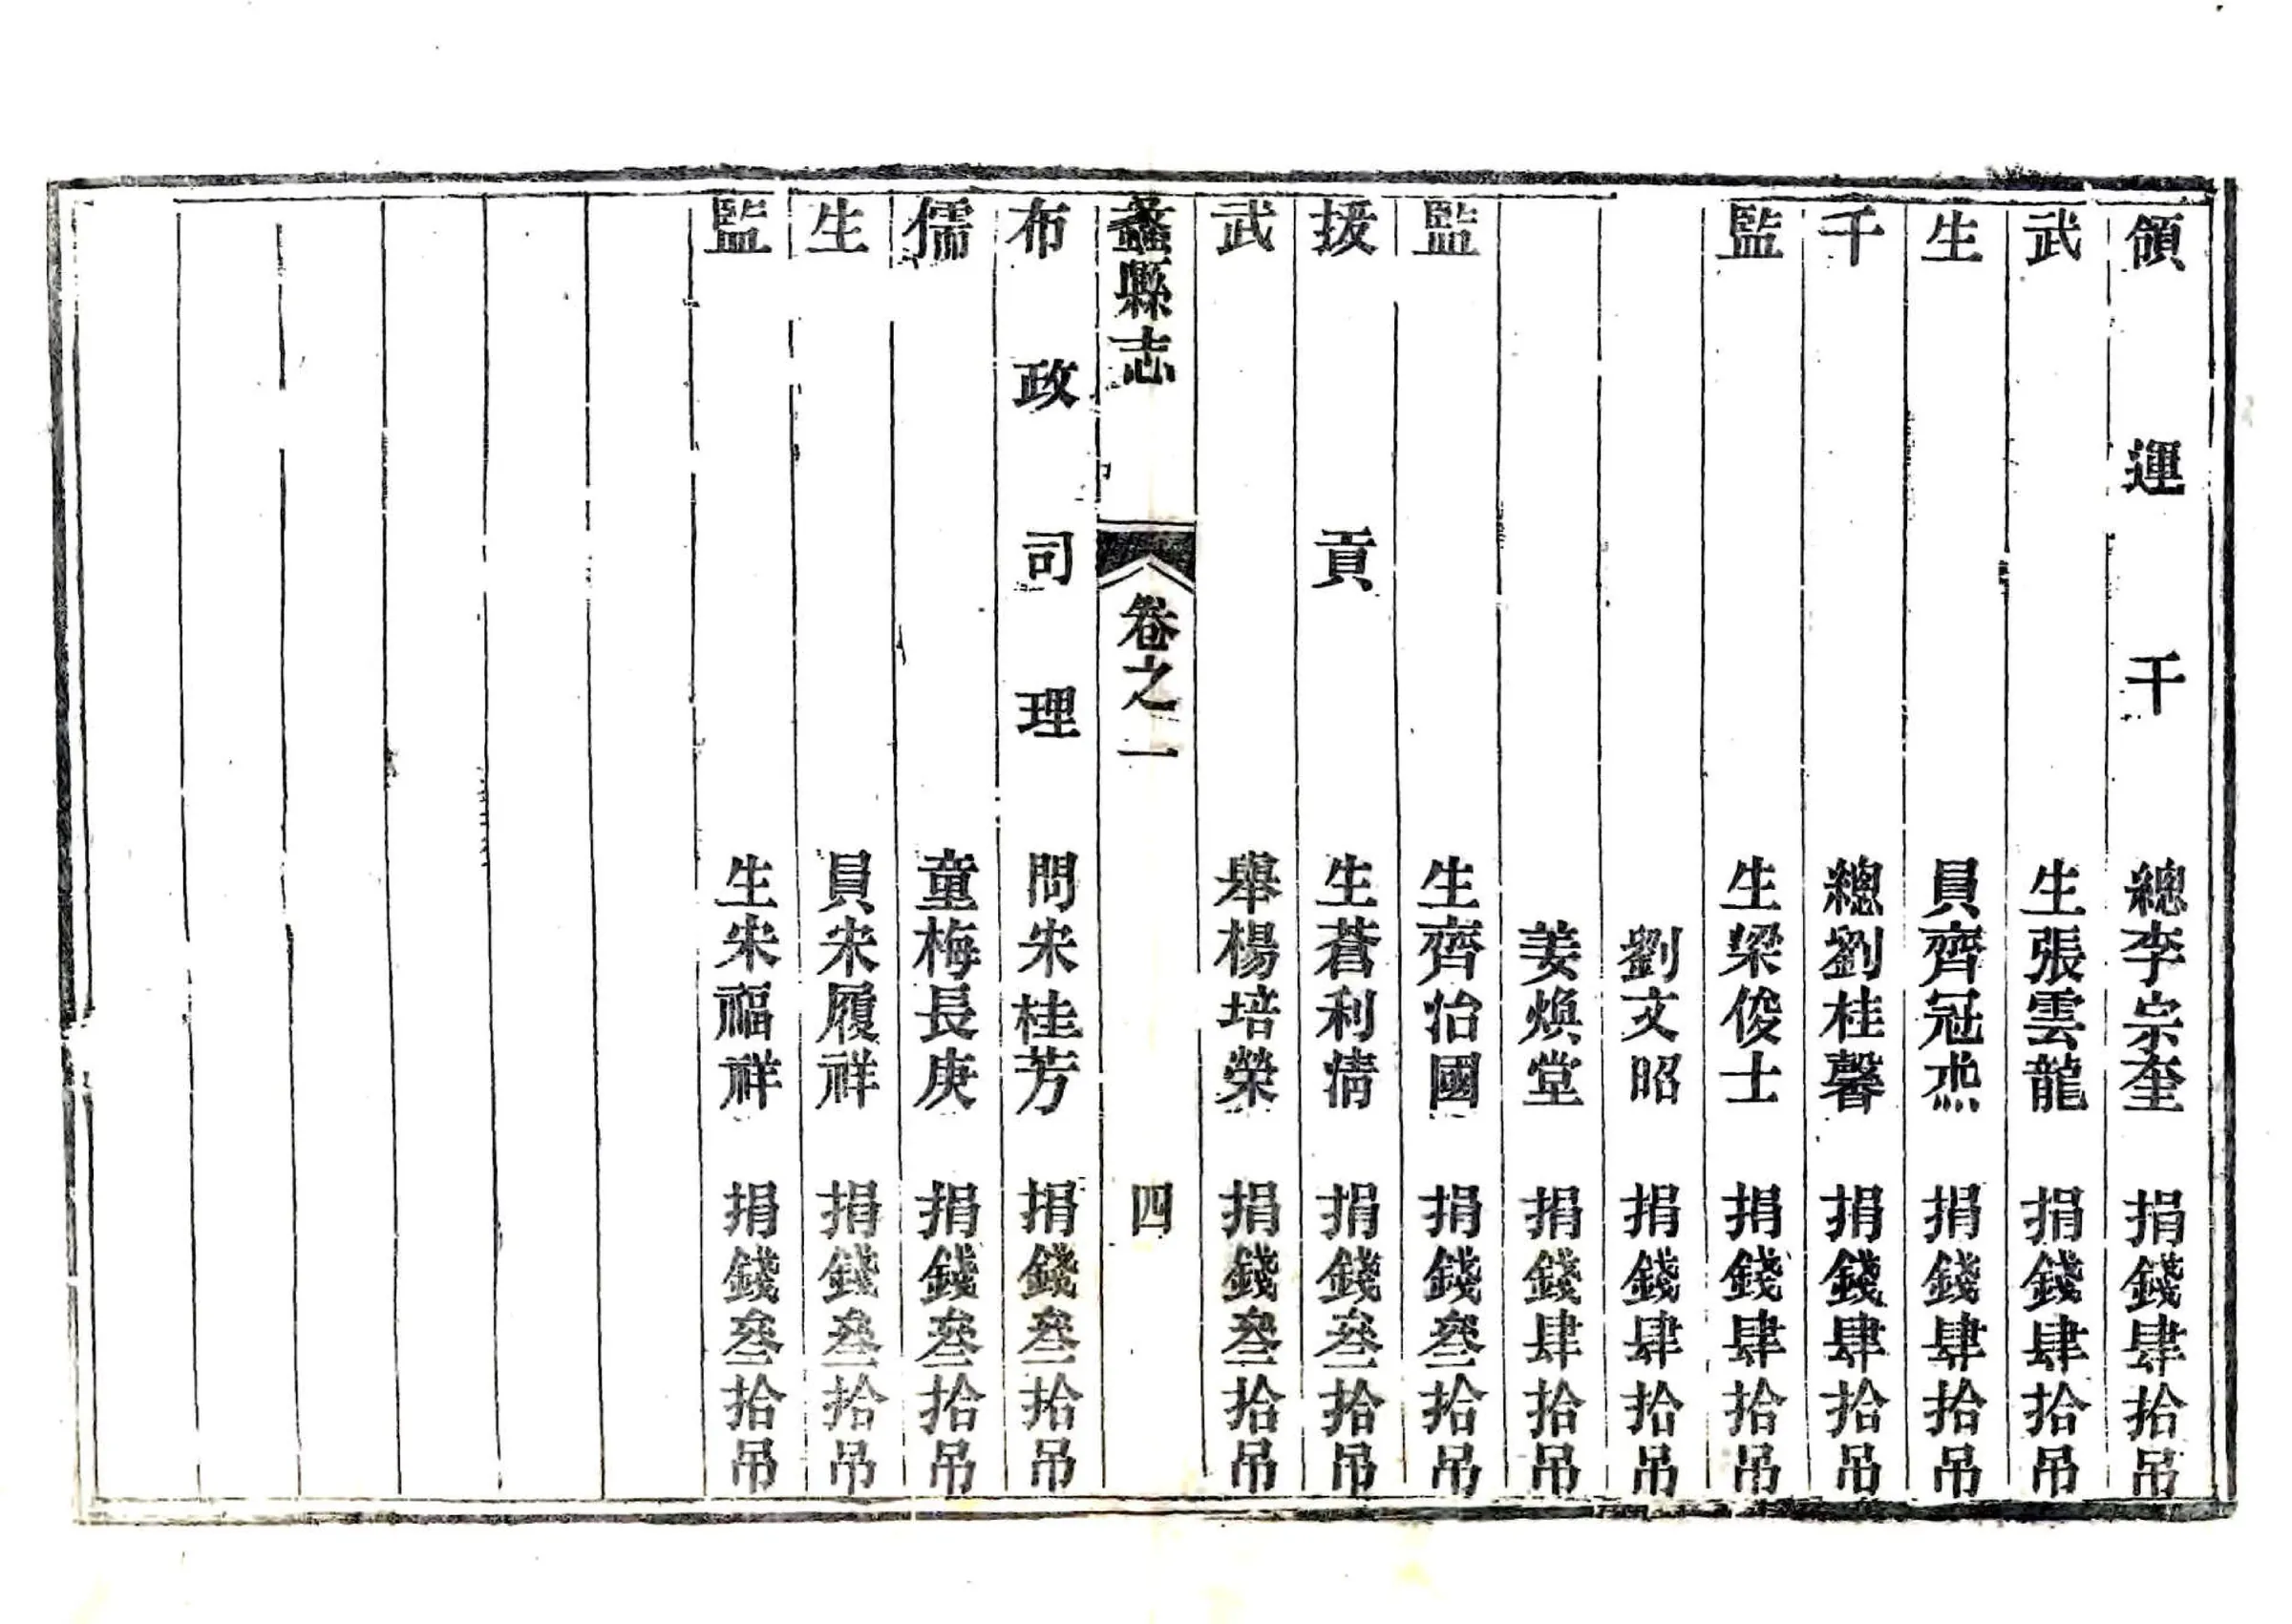 領運千總李宗奎捐錢肆拾吊
武生張雲龍捐錢肆拾吊
生員齊冠杰捐錢肆拾吊
千總劉桂馨捐錢肆拾吊
監生梁俊士捐錢肆拾吊
劉文昭捐錢肆拾吊
姜煥堂捐錢肆拾吊
監生齊治國捐錢叁拾吊
援貢生蒼利清捐錢叁拾吊
武舉楊培榮捐錢叁拾吊
蠡縣志 卷之一 四
布政司理問宋桂芳捐錢叁拾吊
儒童梅長庚捐錢叁拾吊
生員宋履祥捐錢叁拾吊
監生宋福祥捐錢叁拾吊